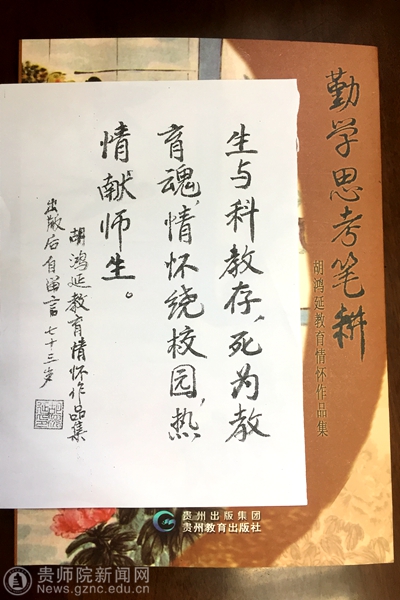 勤学思考笔耕
胡鸿延教育情怀作品集
生与科教存,死为教
育魂,情怀绕校园,热
情献师生。
胡鸿延教育情怀作品集
出版后自留言 七十三岁
贵州出版集团
贵州教育出版社
贵师院新闻网
News.gznc.edu.cn